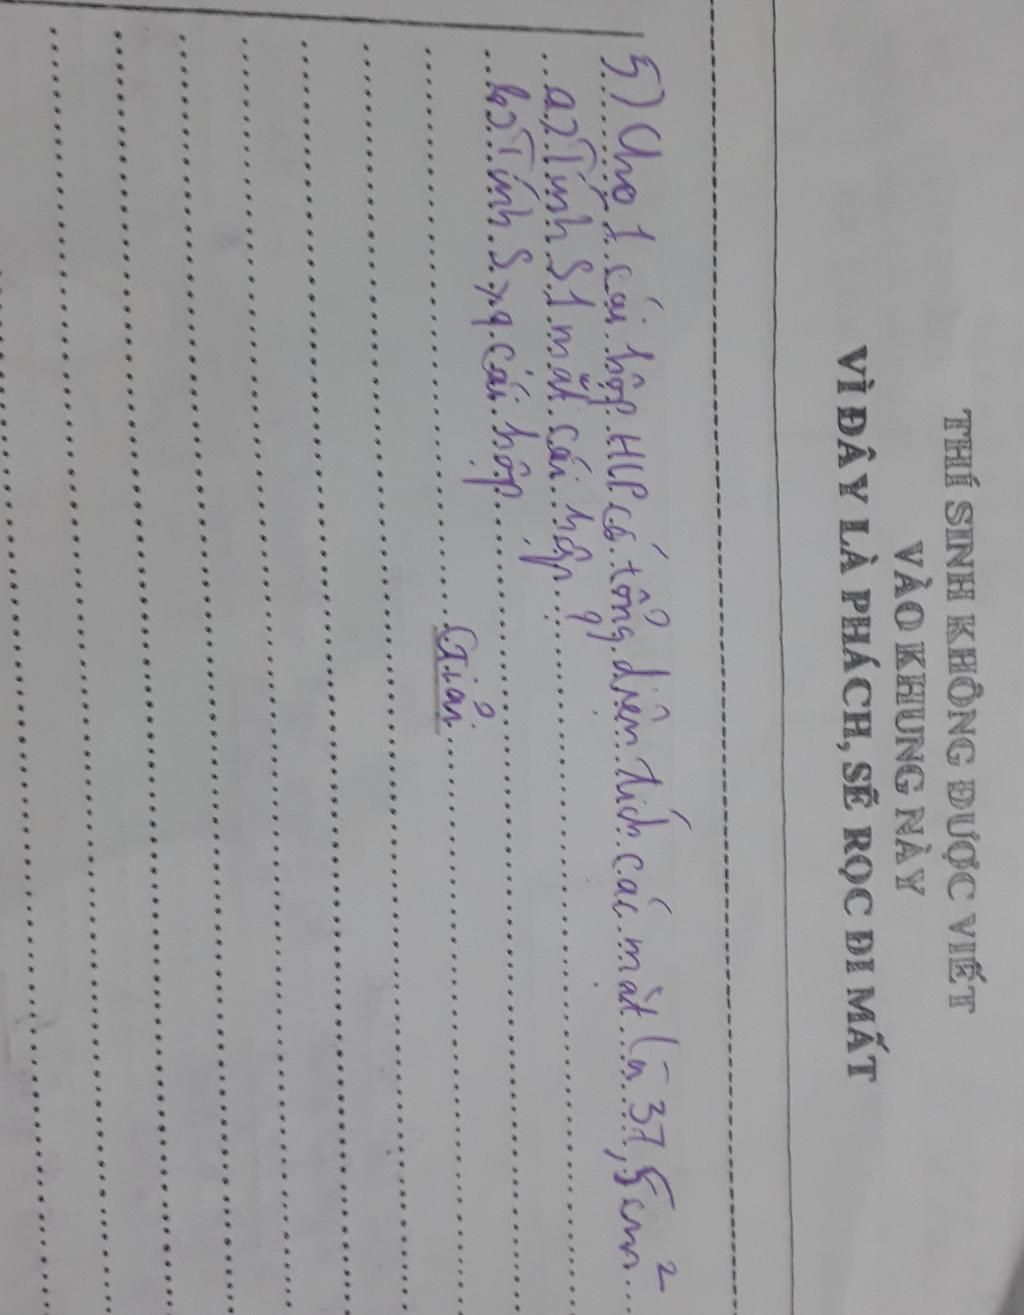 THÍ SINH KHÔNG ĐƯỢC VIẾT
VÀO KHUNG NÀY
VÌ ĐÂY LÀ PHÁCH, SẼ RỌC ĐI MẤT
5) Cho 1 cái hộp HLP có tổng diện tích các mặt là 37,5 cm²
a) Tính S 1 mặt cái hộp?
b) Tính Sxq cái hộp.
Giải